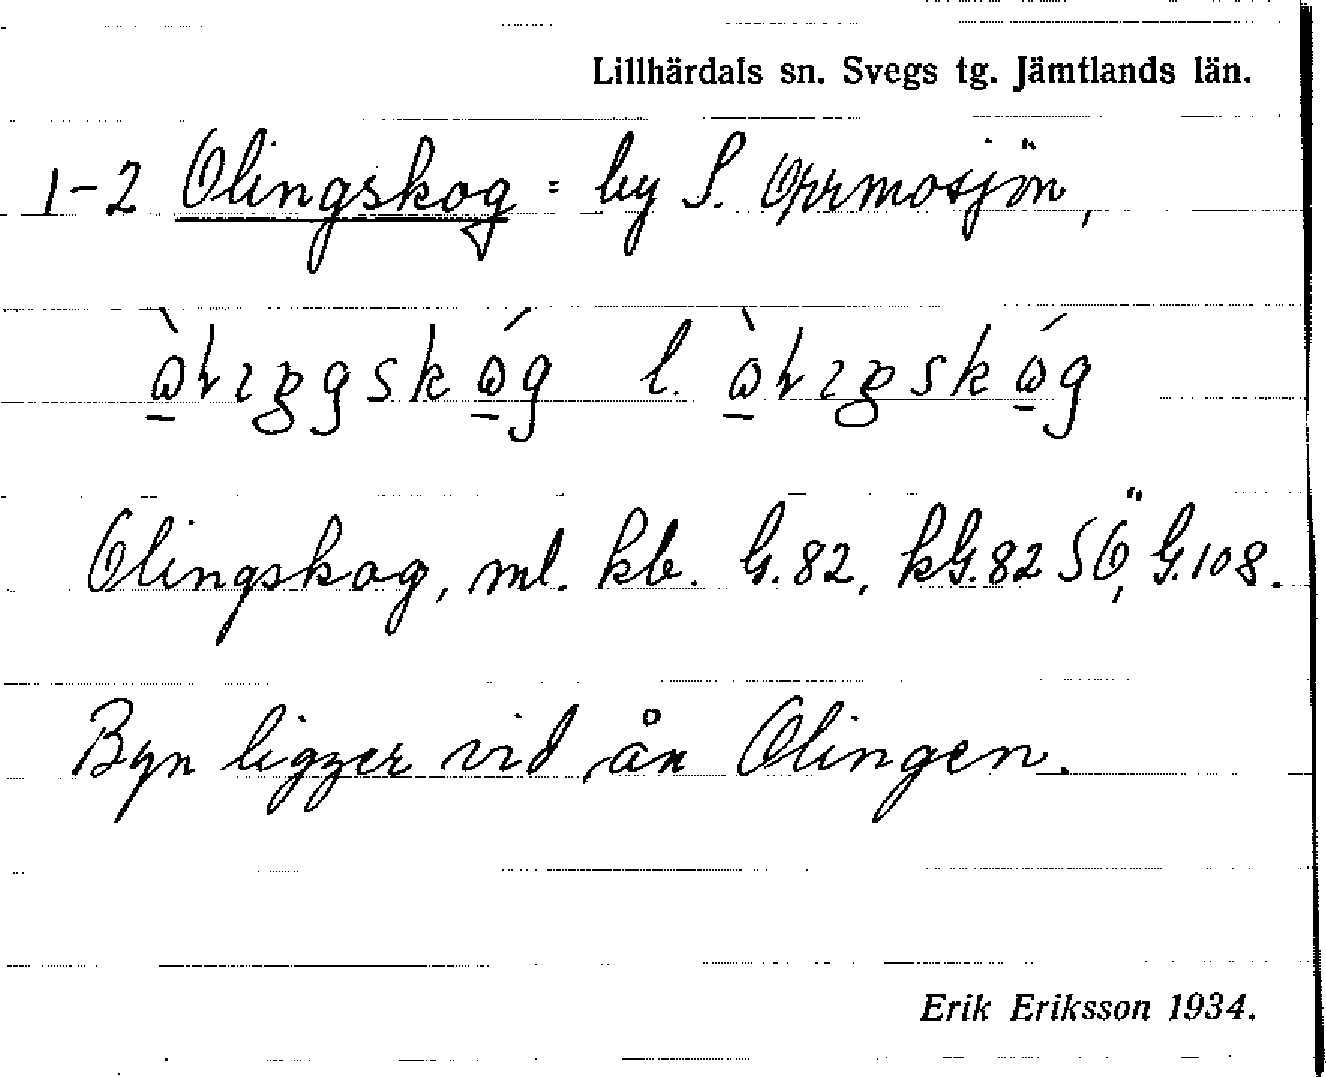 Lillhärdals sn. Svegs tg. Jämtlands län.
1-2 Olingskog = by S. Orrmosjön,
Olingskog, ml. kb. G. 82, kG. 82 SÖ, G. 108.
Byn ligger vid ån Olingen.
Erik Eriksson 1934.